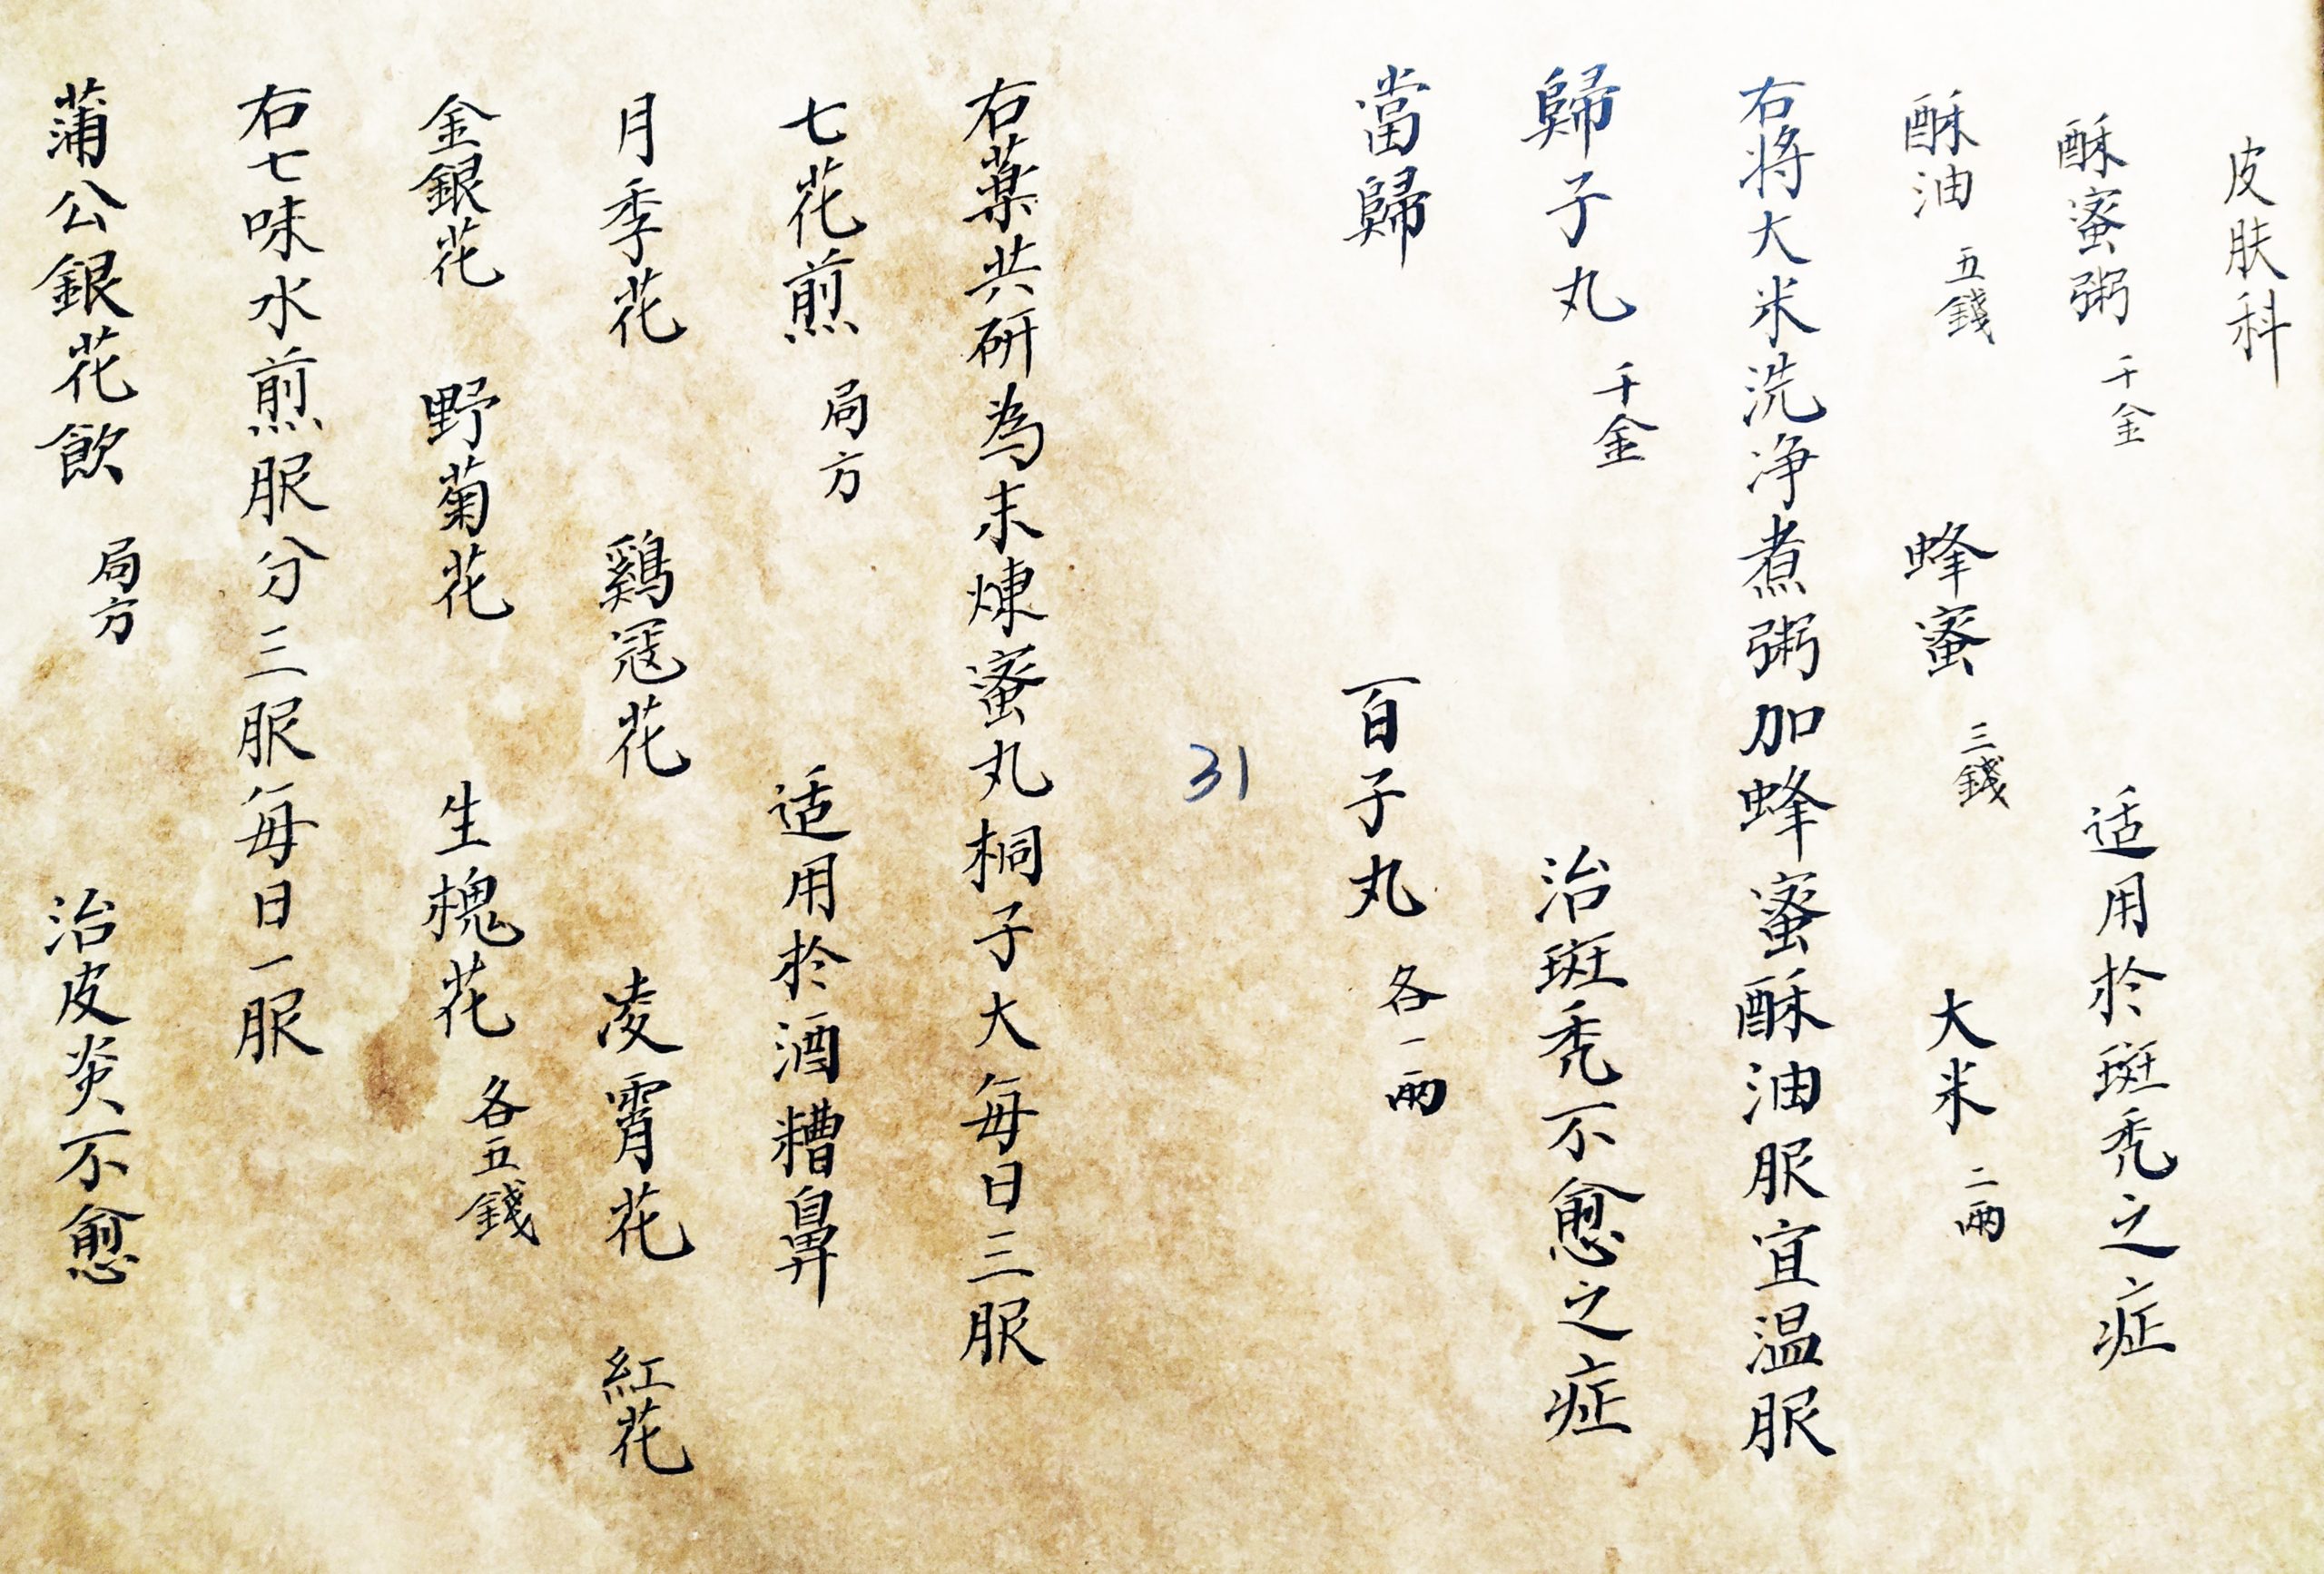 皮肤科
酥蜜粥 千金 适用於斑秃之症
酥油 五錢 蜂蜜 三錢 大米 二兩
右将大米洗净煮粥加蜂蜜酥油服宜温服
歸子丸 千金 治斑秃不愈之症
當歸 百子丸 各一兩
31
右藥共研為末煉蜜丸桐子大每日三服
七花煎 局方 适用於酒糟鼻
月季花 鷄冠花 凌霄花 紅花
金銀花 野菊花 生槐花 各五錢
右七味水煎服分三服每日一服
蒲公銀花飲 局方 治皮炎不愈